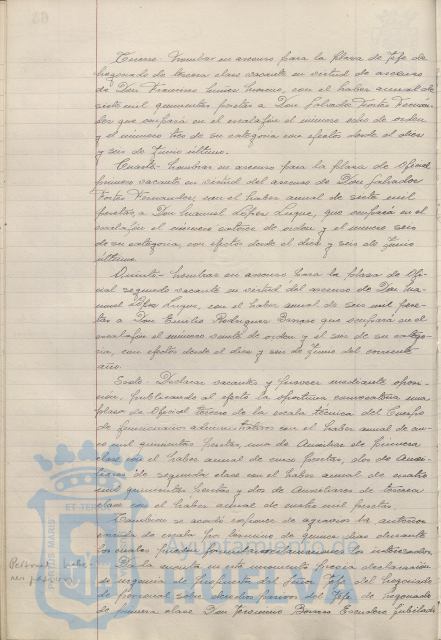 Tercero.- Nombrar en ascenso, para la plaza de Jefe de
Negociado de tercera clase vacante en virtud de ascenso
de Don Francisco Muñoz Moreno, con el haber anual de
siete mil quinientas pesetas a Don Salvador Fortes Fernan-
dez que ocupará en el escalafón el número de orden
y el número tres de su categoría con efectos desde el diez
y seis de Junio último.
Cuarto.- Nombrar en ascenso para la plaza de Oficial
primero vacante en virtud del ascenso de Don Salvador
Fortes Fernandez, con el haber anual de siete mil
pesetas, a Don Manuel López Luque, que ocupará en el
escalafón el número catorce de orden y el número seis
de su categoría, con efectos desde el diez y seis de Junio
último.
Quinto.- Nombrar en ascenso para la plaza de Ofi-
cial segundo vacante en virtud del ascenso de Don Ma-
nuel López Luque, con el haber anual de seis mil pese-
tas a Don Emilio Rodriguez que ocupará en el
escalafón el número veinte de orden y el seis de su catego-
ría, con efectos desde el diez y seis de Junio del corriente
año.
Sexto.- Declarar vacantes y proveer mediante oposi-
ción, publicando al efecto la oportuna convocatoria una
plaza de Oficial tercero de la escala técnica del Cuerpo
de funcionarios administrativos con el haber anual de cin-
co mil quinientas pesetas, una de Auxiliar de primera
clase con el haber anual de cinco mil pesetas, dos de Auxi-
liares de segunda clase con el haber anual de cuatro
mil quinientas pesetas y dos de Auxiliares de tercera
clase con el haber anual de cuatro mil pesetas.
Tambien se acordó de agravios la anterior
de escala por término de quince días durante
los cuales puedan los interesados.
Dada cuenta en este momento previa declaración
de urgencia de propuesta del Señor Jefe del Negociado
de Personal sobre derechos pasivos del Jefe de Negociado
de primera clase Don Escudero Jubilado
ET-TER
PORTUS MARIS
Ayuntamiento de
HUELVA